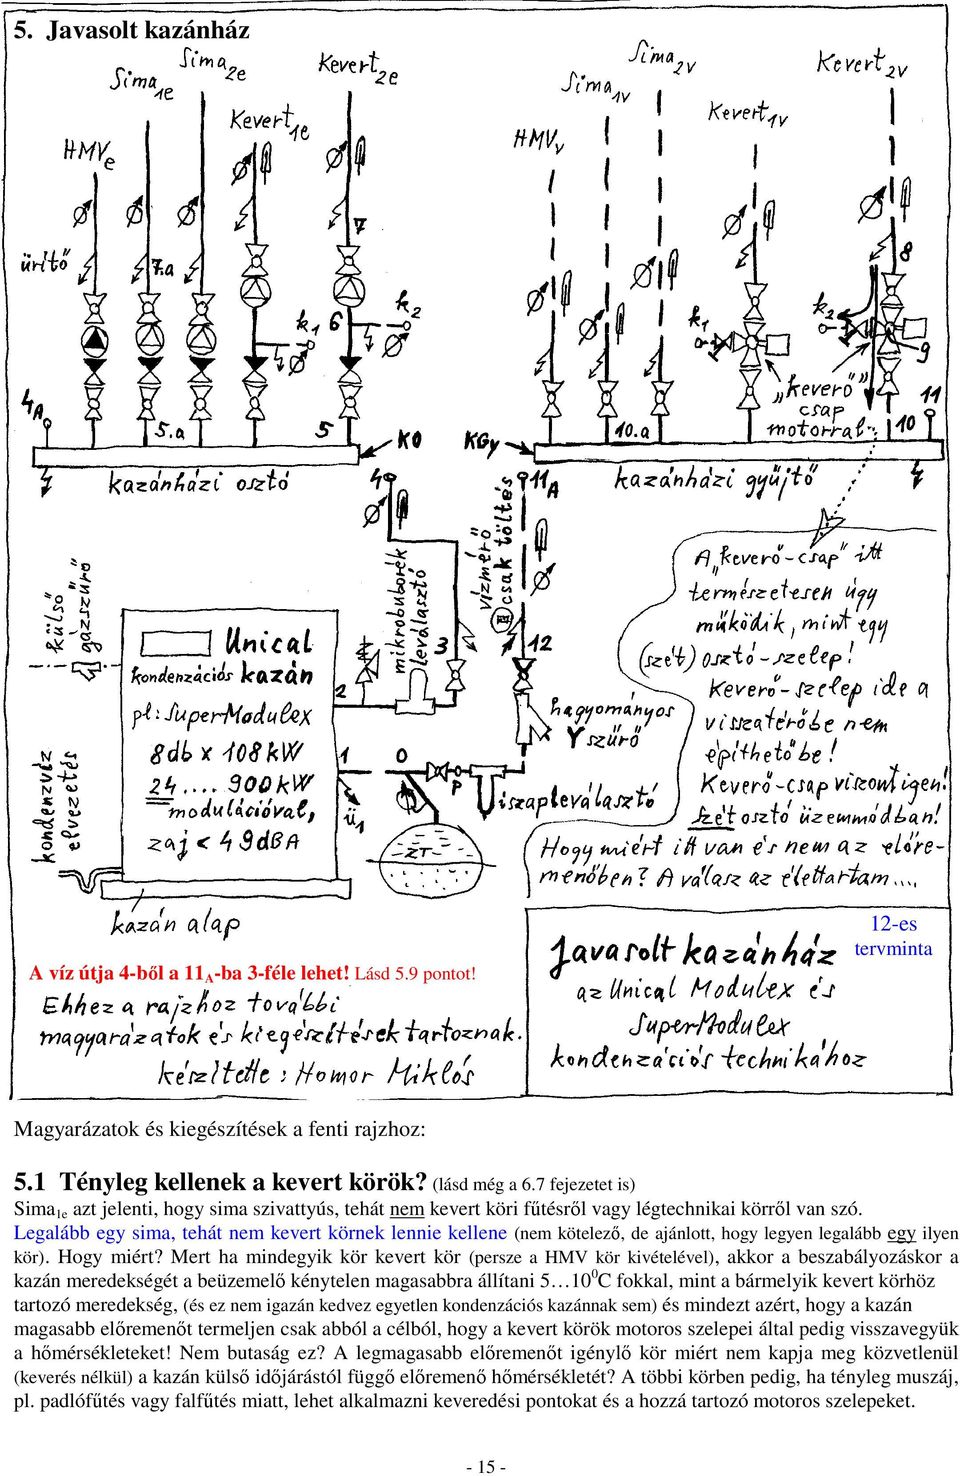 5. Javasolt kazánház
Sima1e
Sima2e
Kevert2e
Kevert1e
HMVe
Sima1v
Sima2v
Kevert2v
Kevert1v
HMVv
ürítő
7.a
7
8
k1
6
k2
k1
k2
9
4A
5.a
5
KO
KGy
10.a
„keverő”
csap
motorral
10
11
kazánházi osztó
4
11A
kazánházi gyűjtő
„külső”
gázszűrő
mikrobuborék
leválasztó
vízmérő
csak töltés
A „keverő-csap” itt
természetesen úgy
működik, mint egy
(szét) osztó-szelep!
Keverő-szelep ide a
visszatérőbe nem
építhető be!
Keverő-csap viszont igen!
Szét osztó üzemmódban!
Hogy miért itt van és nem az előre-
menőben? A válasz az élettartam....
Unical
kondenzációs kazán
pl: SuperModulex
8db x 108kW
24....900kW
modulációval,
zaj < 49dBA
2
3
12
1
0
P
ü1
ZT
hagyományos
Y szűrő
iszapleválasztó
kondenzvíz
elvezetés
kazán alap
A víz útja 4-ből a 11A-ba 3-féle lehet! Lásd 5.9 pontot!
Ehhez a rajzhoz további
magyarázatok és kiegészítések tartoznak.
készítette: Homor Miklós
Javasolt kazánház
az Unical Modulex és
SuperModulex
kondenzációs technikához
12-es
tervminta
Magyarázatok és kiegészítések a fenti rajzhoz:
5.1 Tényleg kellenek a kevert körök? (lásd még a 6.7 fejezetet is)
Sima1e azt jelenti, hogy sima szivattyús, tehát nem kevert köri fűtésről vagy légtechnikai körről van szó.
Legalább egy sima, tehát nem kevert körnek lennie kellene (nem kötelező, de ajánlott, hogy legyen legalább egy ilyen
kör). Hogy miért? Mert ha mindegyik kör kevert kör (persze a HMV kör kivételével), akkor a beszabályozáskor a
kazán meredekségét a beüzemelő kénytelen magasabbra állítani 5…10 0C fokkal, mint a bármelyik kevert körhöz
tartozó meredekség, (és ez nem igazán kedvez egyetlen kondenzációs kazánnak sem) és mindezt azért, hogy a kazán
magasabb előremenőt termeljen csak abból a célból, hogy a kevert körök motoros szelepei által pedig visszavegyük
a hőmérsékleteket! Nem butaság ez? A legmagasabb előremenőt igénylő kör miért nem kapja meg közvetlenül
(keverés nélkül) a kazán külső időjárástól függő előremenő hőmérsékletét? A többi körben pedig, ha tényleg muszáj,
pl. padlófűtés vagy falfűtés miatt, lehet alkalmazni keveredési pontokat és a hozzá tartozó motoros szelepeket.
- 15 -